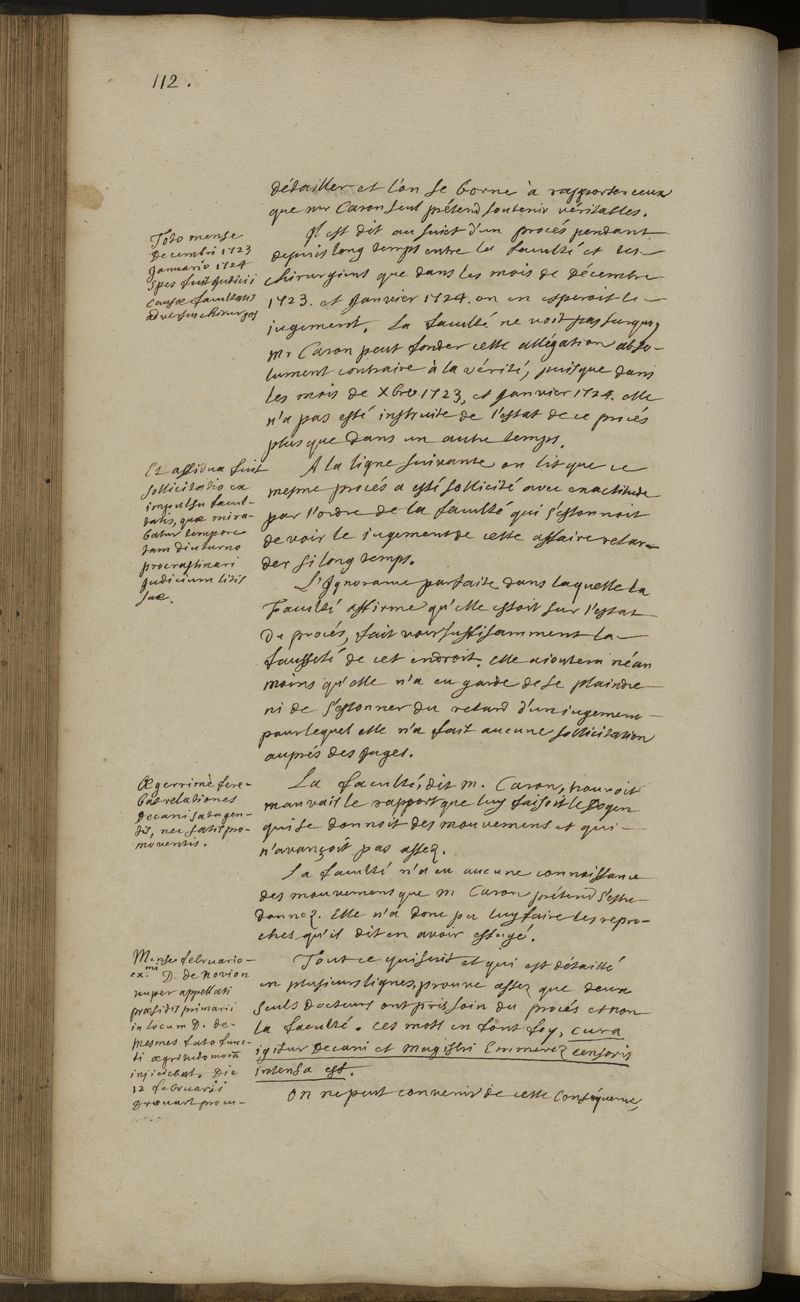 112.
détailler et l'on se borne à rapporter ceux
que mr Caron seul prétend soutenir véritables.
Toto mense
Decembri 1723
Januario 1724
spes fuit judicii
causæ facultatis
adversus chirurgos
Il est dit au sujet d'un procés pendant
depuis long temps entre la faculté et les
chirurgiens que dans les mois de décembre
1723. et Janvier 1724. on en esperoit le
jugement. La faculté ne voit pas surquoy
Mr Caron peut fonder cette allégation abso-
lument contraire à la vérité, puisque dans
les mois de Xbre 1723, et Janvier 1724. elle
n'a pas esté instruite de l'estat de ce procés
plus que dans un autre temps.
Et assidua fuit
sollicitatio ex
impulsu facul-
tatis, quæ mira-
batur tempore
tam diuturno
procrastinari
judicium litis
suæ.
A la ligne suivante on lit que ce
mesme procés a esté sollicité avec exactitude
par l'ordre de la faculté qui s'estonnoit
de voir le jugement de cette affaire retar-
der si long temps.
L'Ignorance parfaite dans laquelle la
Faculté affirme qu'elle estoit sur l'estat
du procés, fait voir suffisamment la
fausseté de cet endroit. elle ajoutera néan
moins qu'elle n'a eu garde de se plaindre
ni de s'estonner du retard d'un jugement
pour lequel elle n'a fait aucune sollicitation
auprés des Juges.
Ægerrimè fere-
bat relationes
Decani satagen-
tis, nec satis pro-
moventis.
La faculté, dit m. Caron, trouvoit
mauvais le rapport que luy faisoit le Doyen
qui se donnoit des mouvemens et qui
n'avançoit pas assez.
La faculté n'a eu aucune connoissance
des mouvemens que m Caron prétend s'estre
donnez. Elle n'a donc pu luy faire les repro-
ches qu'il dit en avoir essuyé.
Mense februario
exmi D. de Novion
nuper appellati
præsidis primarii
in locum D. de
mesmes fato func-
ti ægritudo moram
injiciebat. Die
12 februarii
Tout ce qui suit et qui est détaillé
en plusieurs lignes, prouve assez que deux
seuls docteurs ont pris soin du procés et non
la faculté. ces mots en font foy, cura
igitur Decani et Magistri Emmerez censoris
intensa est.
On ne peut convenir de cette conséquence,